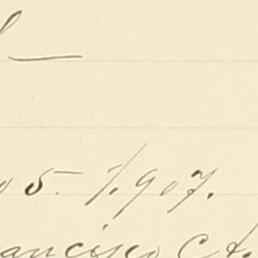 5. 1907.
ancisco Ct.